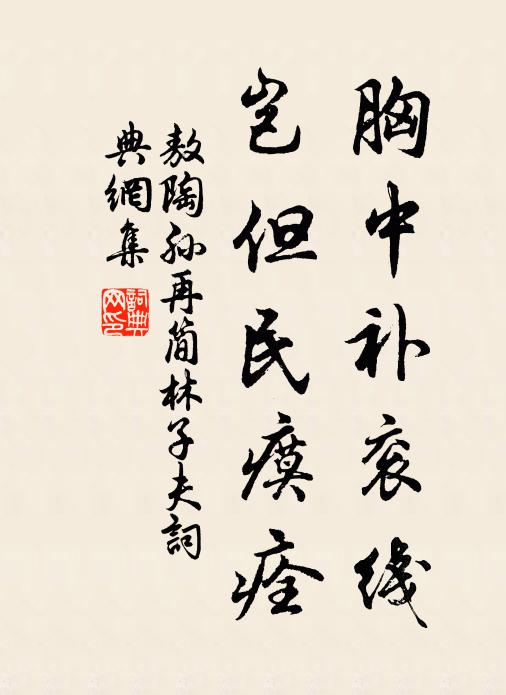 胸中补衮线
岂但民瘼痊
敖陶孙再简林子夫詞
典網集
詞典网印